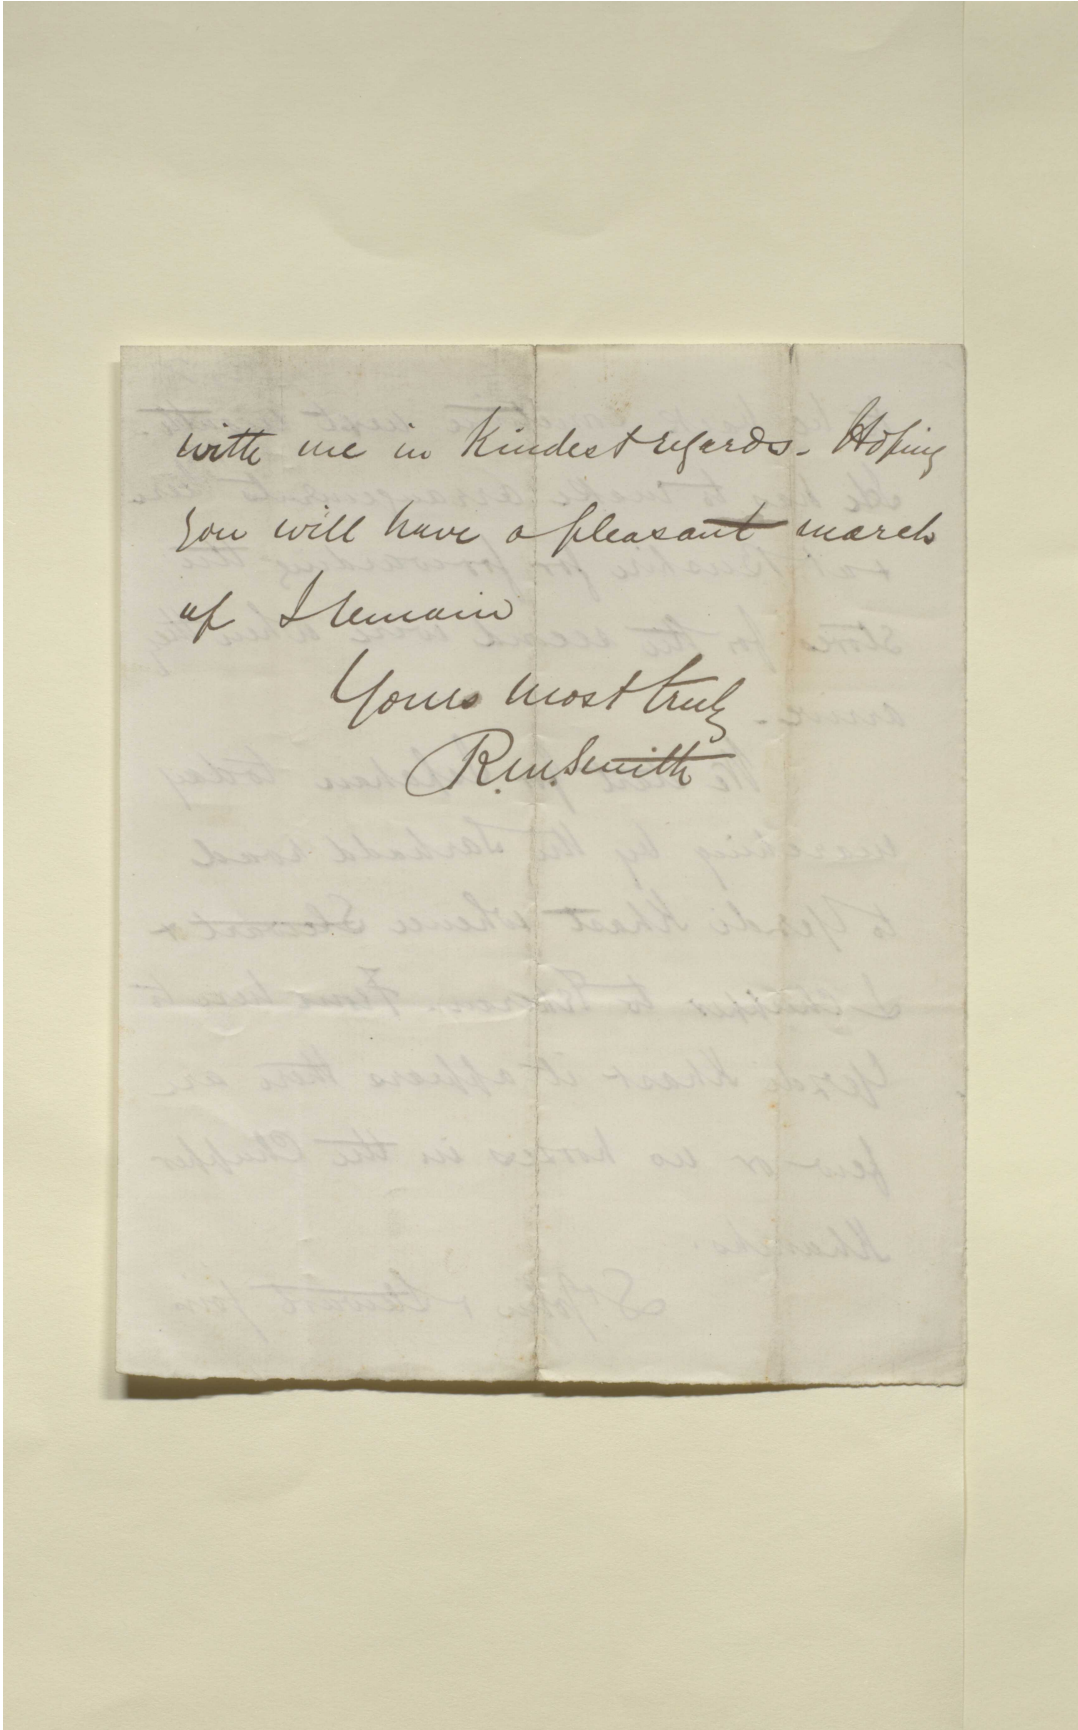 with me in kindest regards. Hoping
you will have a pleasant march
up I remain
Yours most truly
R.M.Smith